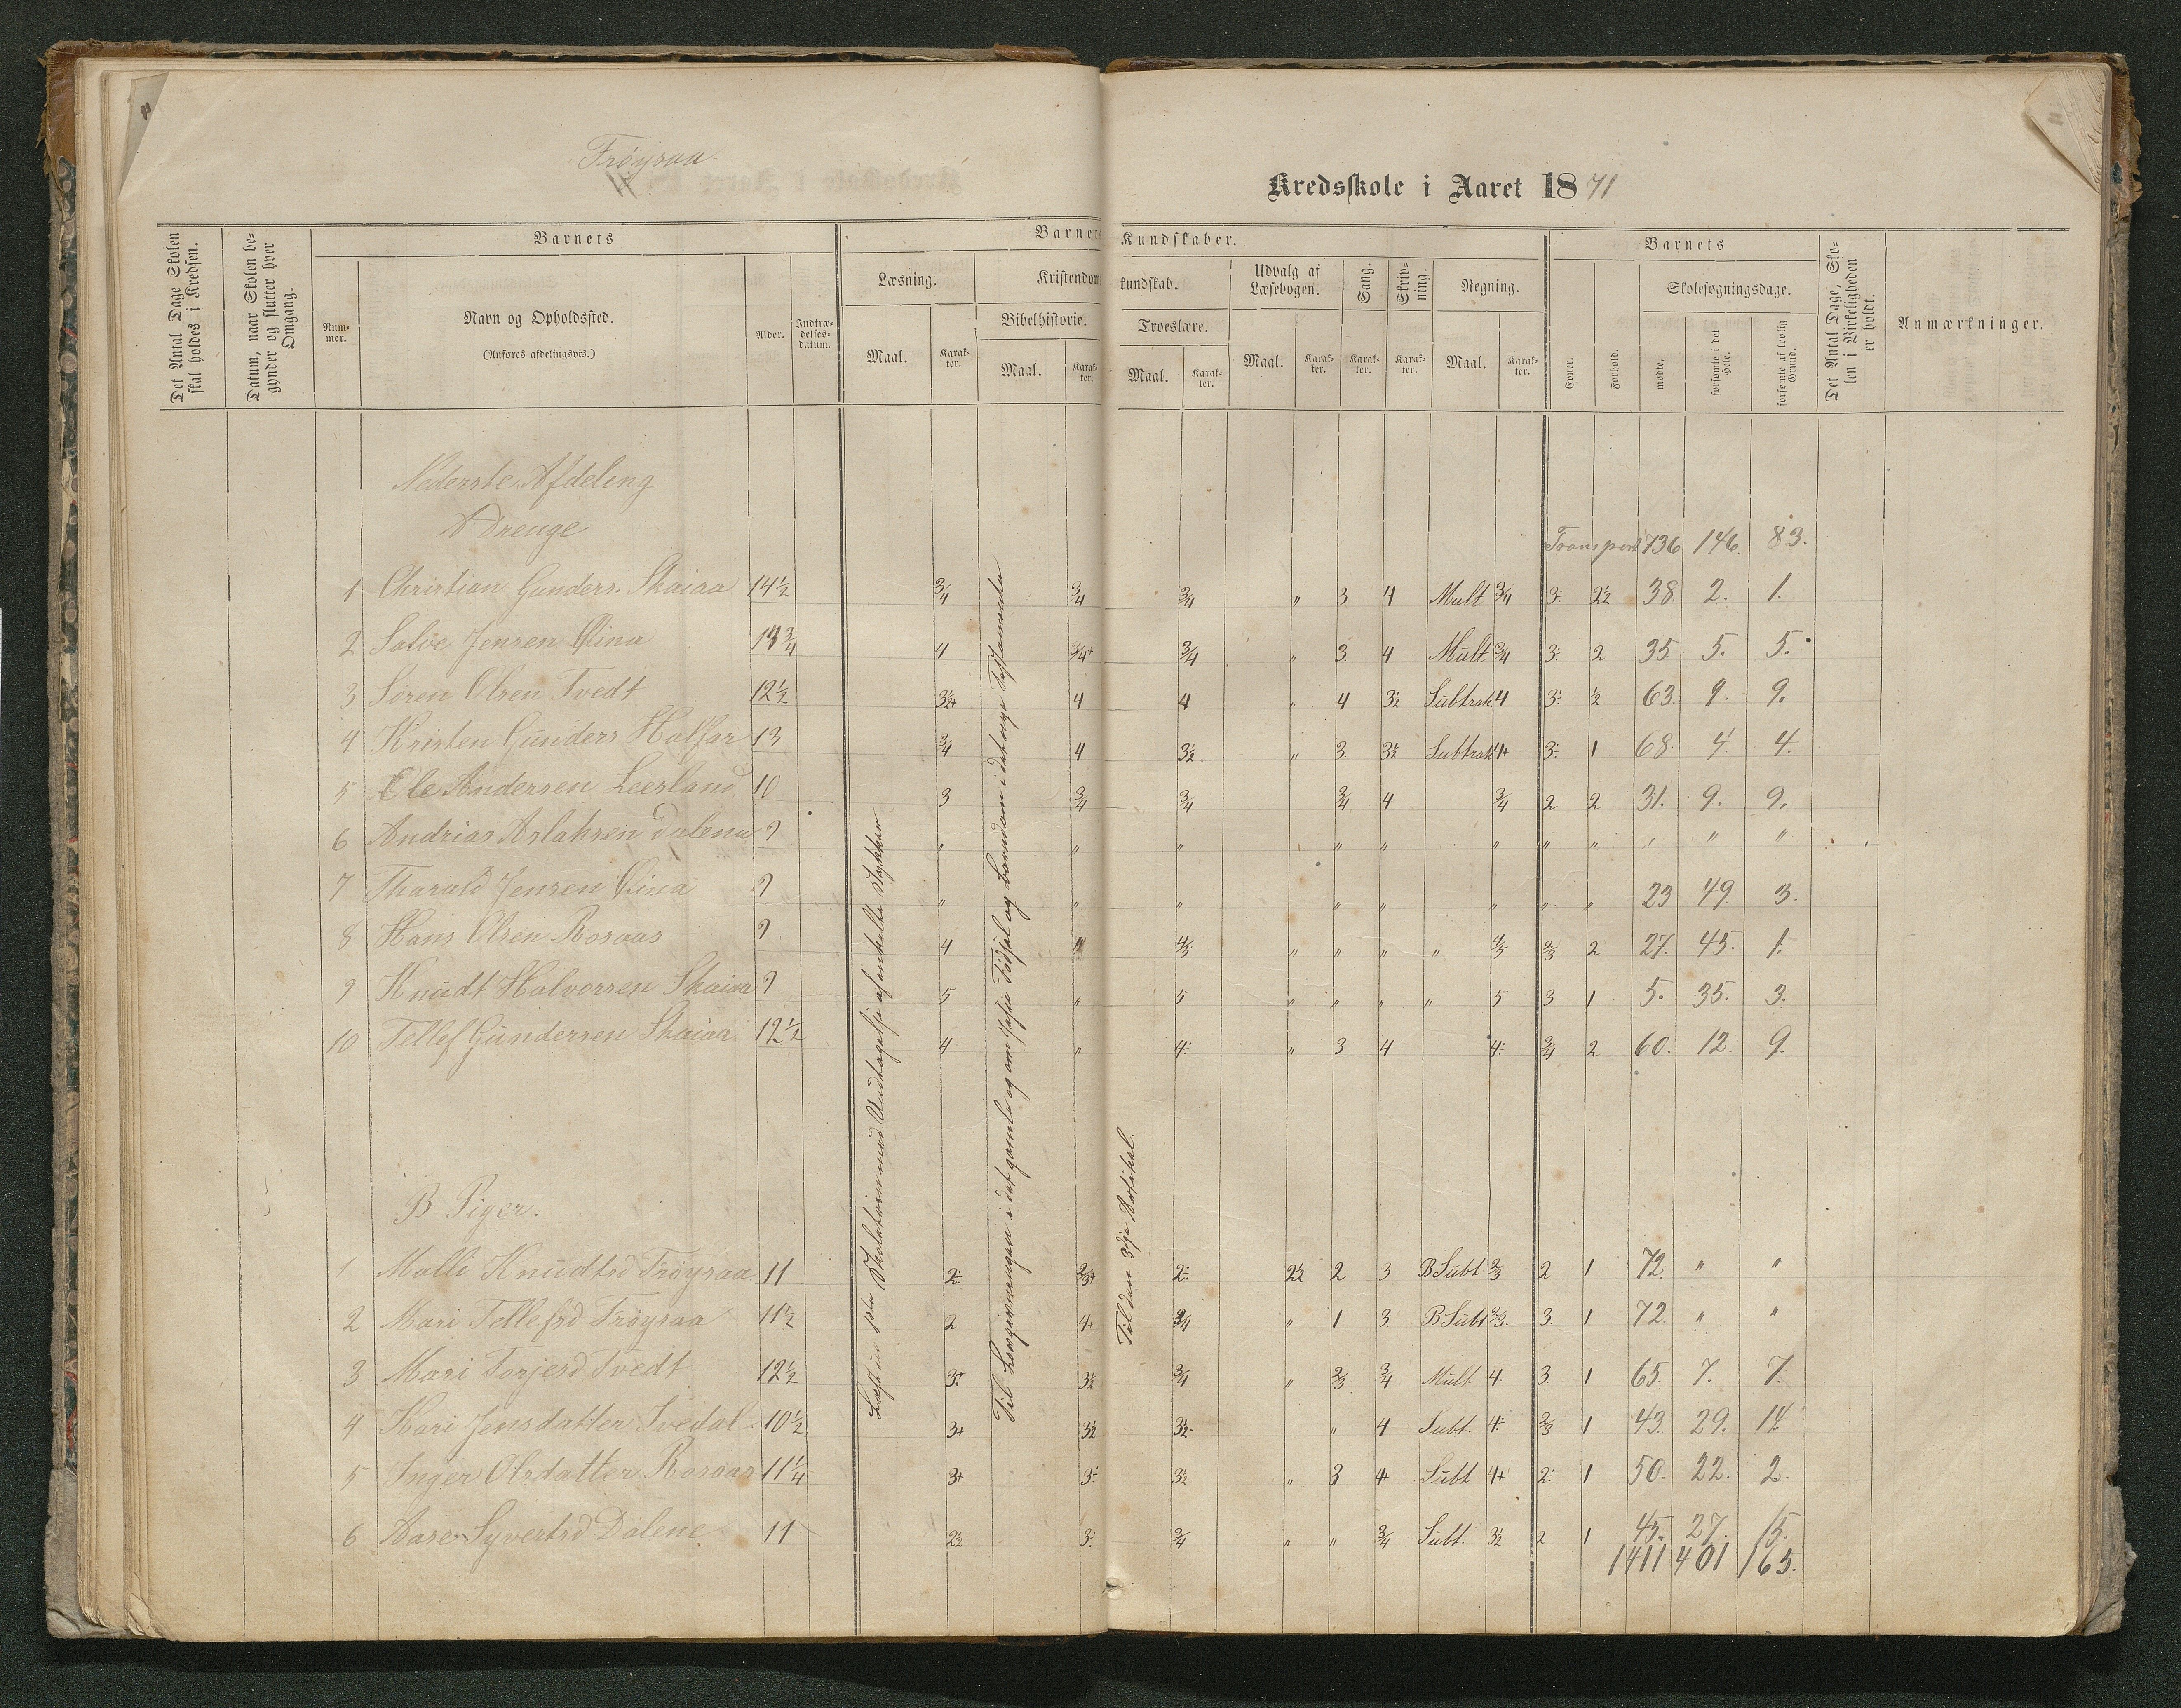 Frøysaa
Kredsskole i Aaret 1871
Det Antal Dage Skolen skal holdes i Kredsen.
Datum, naar Skolen begynder og slutter hver Omgang.
Barnets
Nummer.
Navn og Opholdssted.
(Anføres afdelingsvis.)
Alder.
Indtrædelsesdatum.
Barnets Kundskaber.
Læsning.
Maal.
Karakter.
Kristendomskundskab.
Bibelhistorie.
Maal.
Karakter.
Troeslære.
Maal.
Karakter.
Udvalg af Læsebogen.
Maal.
Karakter.
Sang.
Karakter.
Skrivning.
Karakter.
Regning.
Maal.
Karakter.
Barnets
Evner.
Forhold.
Skolesøgningsdage.
mødte.
forsømte i det Hele.
forsømte af lovlig Grund.
Det Antal Dage, Skolen i Virkeligheden er holdt.
Anmærkninger.
Nederste Afdeling
Drenge
Transport 736 146. 83.
1 Christian Gunders. Skaiaa 14½ 3/4 3/4 3/4 " 3 4 Mult 3/4 3÷ 2½ 38. 2. 1.
2 Salve Jensen 13¾ 4 3/4+ 3/4 " 3. 4 Mult 3/4 3÷ 2 35 5. 5.
3 Søren Olsen Tvedt 12½ 3½+ 4 4 " 4 3½ Subtrak 4 3÷ ½ 63. 9. 9.
4 Kristen Gunders 13 3/4 4 3½ " 3. 3½ Subtrak 4+ 3÷ 1 68. 4. 4.
5 Ole Andersen Leerland 10 3 3/4 3/4 3/4 4 3/4 2 2 31. 9. 9.
6 Andrias Aslaksen Dalene 9 " " " " " " " " " " "
7 Tharald Jensen 9 " " " " " " " " 23 49. 3.
8 Hans Olsen Rosaas 9 4 4 4/5 " " " " 4/5 2/3 2 27. 45. 1.
9 Knudt Halvorsen Skaiaa 9 5 " 5 " " " " 5 3 1 5. 35. 3.
10 Tellef Gundersen Skaiaa 12½ 4 " 4÷ " 3 4 4÷ 3/4 2 60. 12. 9.
Læst i 1ste med Undtagelse af enkelte Stykker
Til Lovgivningen i det gamle og om Jesu Fødsel og Barndom i det nye Testamente
Til den 3dje Artikel.
B Piger.
1 Malli Knudtsd Frøysaa 11 2÷ 2/3+ 2÷ 2½ 2 3 B Subt 2/3 2 1 72. " "
2 Mari Tellefsd Frøysaa 11½ 2 4+ 3/4 " 1 3. B Subt 2/3. 3. 1 72. " "
3 Mari Torjesd Tvedt 12½ 3+ 3½ 3/4 " 2/3. 3/4 Mult 4. 3. 1 65. 7. 7.
4 Kari Jensdatter Ivedal 10½ 3+ 3½ 3½ " 4 Subt. 4÷ 2/3 1 43. 29. 14.
5 Inger Olsdatter Rosaas 11¼ 3+ 3÷ 3½ " 3 4 Subt 4+ 2÷ 1 50. 22. 2.
6 Aase Syvertsd Dalene 11 2½ 3÷ 3/4 " " 3/4 Subt. 3½ 2 1 45. 27. 15.
1411 401 165.